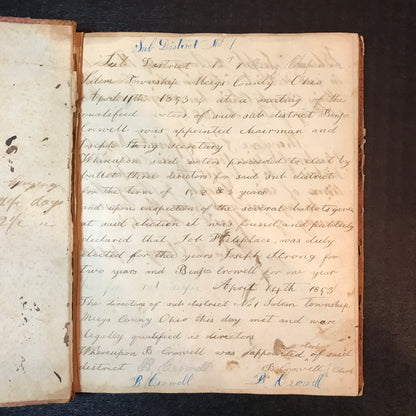 Sub District No 1
Sub District No 1
Salem Township Meigs County Ohio
April 11th 1853 at a meeting of the
qualified voters of said sub district Benja
Crowell was appointed chairman and
Joseph Strong secretary
Whereupon said voters proceeded to elect by
ballot three directors for said sub district
for the term of 1 2 & 3 years
and upon inspection of the several ballots given
at said election it was found and publicly
declared that Job Phileplace, was duly
elected for three years Joseph Strong for
two years and Benja Crowell for one year
April 14th 1853
The directors of sub district No 1 Salem township
Meigs County Ohio this day met and were
legally qualified as directors
Whereupon B Crowell was appointed clerk of said
district B Crowell B Crowell Clerk
B Crowell B Crowell
day